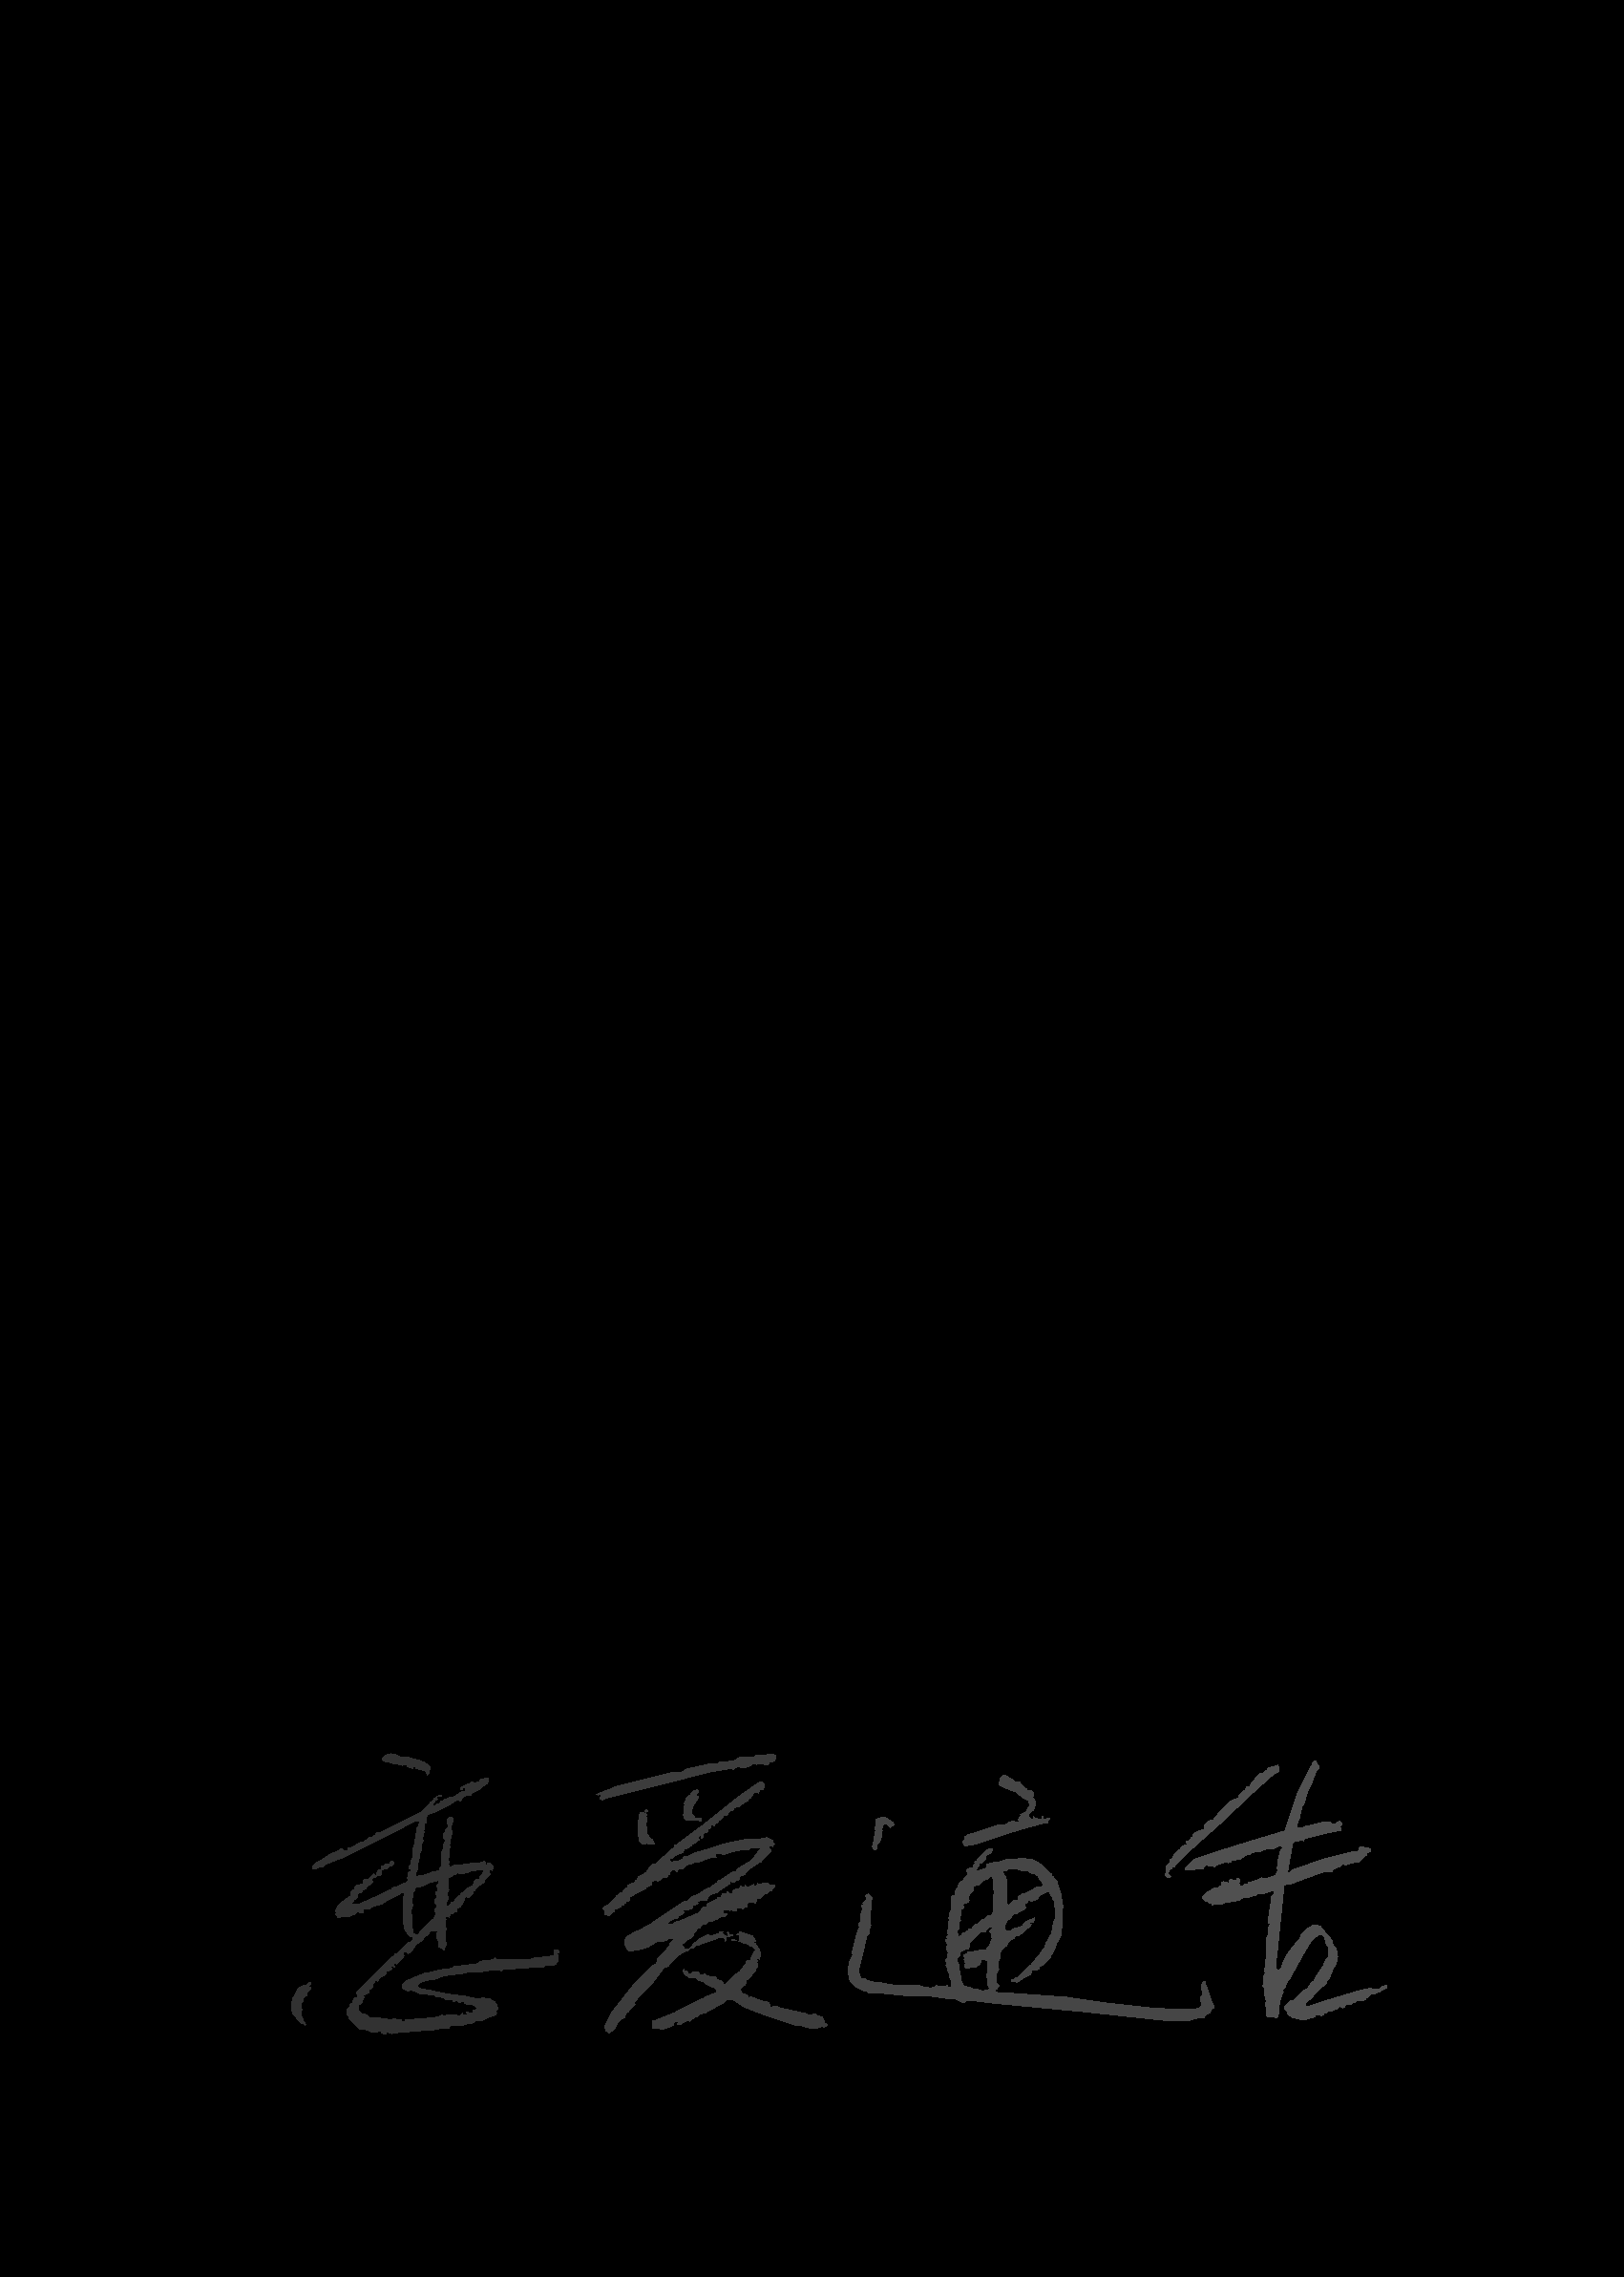 恋爱通告